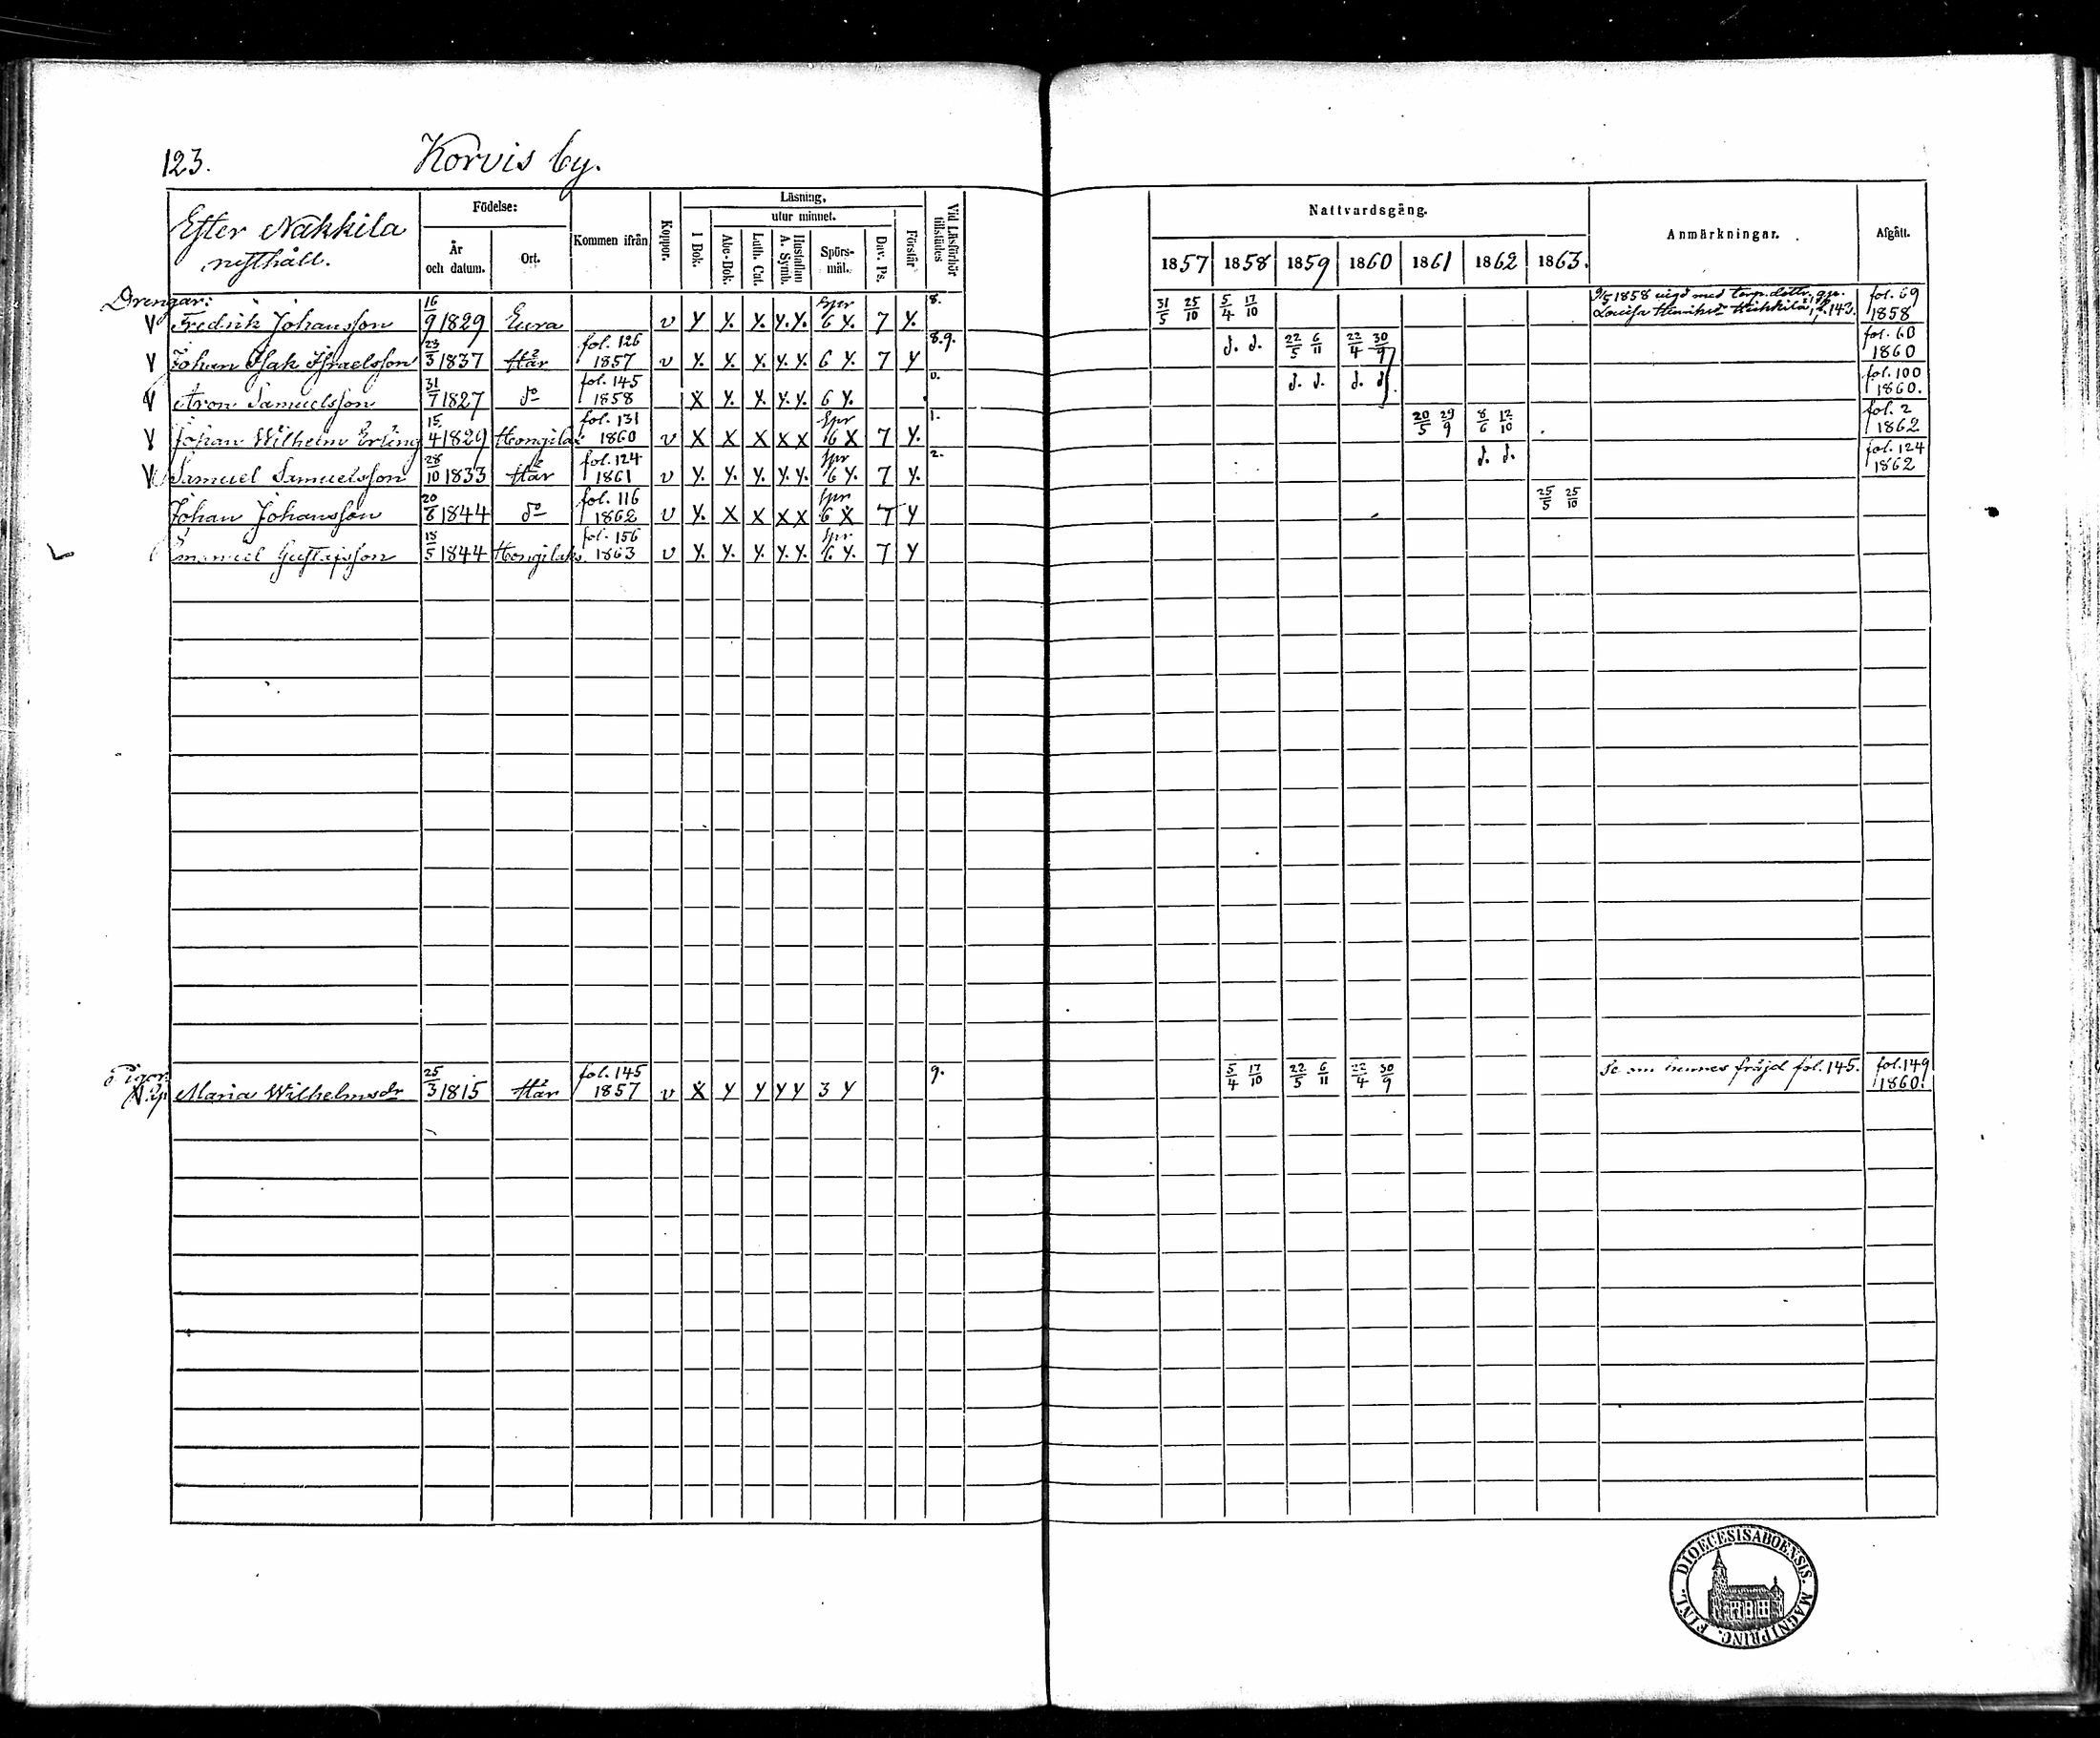 123. Korvis by.
Efter Näkkilä
rusthåll.
Födelse:
År
och datum.
Ort.
Kommen ifrån
Koppor.
Läsning,
utur minnet.
I Bok.
Abc-Bok.
Luth. Cat.
Hustaflan
A. Symb.
Spörs-
mål.
Dav. Ps.
Förstår
Vid Läsförhör
tillstädes
Nattvardsgång.
1857 1858 1859 1860 1861 1862 1863.
Anmärkningar.
Afgått.
Drengar:
V Fredrik Johansson 16/9 1829 Eura v Y Y. Y. Y. Y. Spr 6 Y. 7 Y. 8. 31/5 25/10 5/4 17/10 9/5 1858 vigd med torp.dottr. fol. 69 1858
V Johan Isak Israelsson 23/3 1837 Här fol. 126 1857 v Y. Y. Y. Y. Y. 6 Y. 7 Y 8.9. d. d. 22/5 6/11 22/4 30/9 fol. 60 1860
V Aron Samuelsson 31/7 1827 do fol. 145 1858 X Y. Y. Y. Y. 6 Y. 0. d. d. d. d. fol. 100 1860.
V Johan Wilhelm Erling 15/4 1829 Hongilax fol. 131 1860 v X X X X X Spr 6 X 7 Y. 1. 20/5 29/9 8/6 12/10 fol. 2 1862
V Samuel Samuelsson 28/10 1833 Här fol. 124 1861 v Y. Y. Y. Y. Y. Spr 6 Y. 7 Y. 2. d. d. fol. 124 1862
Johan Johansson 20/6 1844 do fol. 116 1862 v Y. X X X X Spr 6 X 7 Y 25/5 25/10
Emanuel Gustafsson 18/5 1844 Hongilaks. fol. 156 1863 v Y. Y. Y. Y. Y. Spr 6 Y. 7 Y
Pigor:
Maria Wilhelmsdr 25/3 1815 Här fol. 145 1857 v X Y Y Y Y 3 Y 9. 5/4 17/10 22/5 6/11 22/4 30/9 Se om hennes fräjd fol. 145. fol. 149 1860.
DIOECESIS ABOENSIS. MAGNI PRINC. FINL.